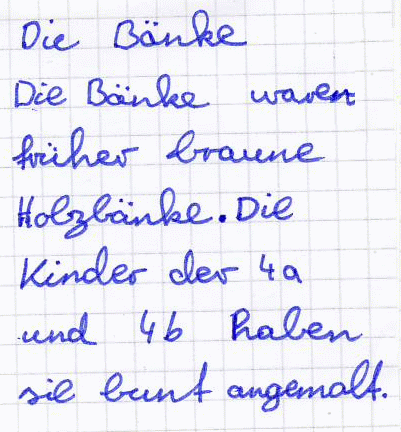 Die Bänke
Die Bänke waren
früher braune
Holzbänke. Die
Kinder der 4a
und 4b haben
sie bunt angemalt.